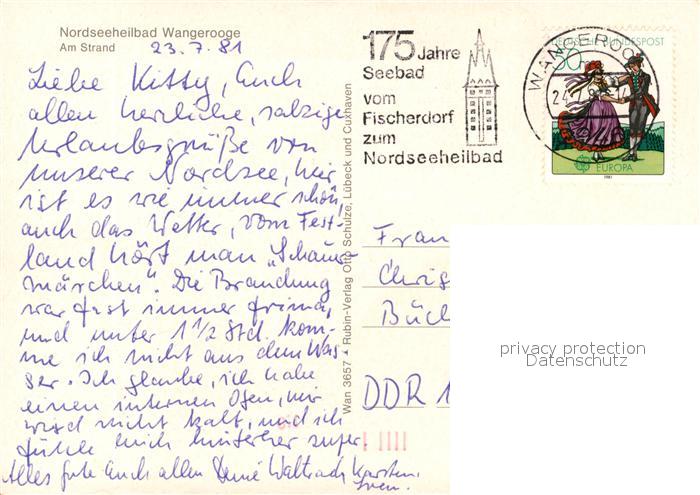 Nordseeheilbad Wangerooge
Am Strand
23.7.81
Liebe Kitty, Euch
allen herzliche, salzige
Urlaubsgrüße von
unserer Nordsee, hier
ist es wie immer schön,
auch das Wetter, vom Fest-
land hört man „Schauer-
märchen“. Die Brandung
war fast immer prima,
und unter 1 1/2 Std. kom-
me ich nicht aus dem Was-
ser. Ich glaube, ich habe
einen internen Ofen, mir
wird nicht kalt, und ich
fühle mich hinterher super
Alles Gute Euch allen Deine Waltraud Karsten
Sven.
Wan 3657 Rubin-Verlag Otto Schulze, Lübeck und Cuxhaven
175 Jahre
Seebad
vom
Fischerdorf
zum
Nordseeheilbad
WANGEROO
24.
DEUTSCHE BUNDESPOST
50
EUROPA
1981
Frau
Chris
Büc
DDR 1
privacy protection
Datenschutz